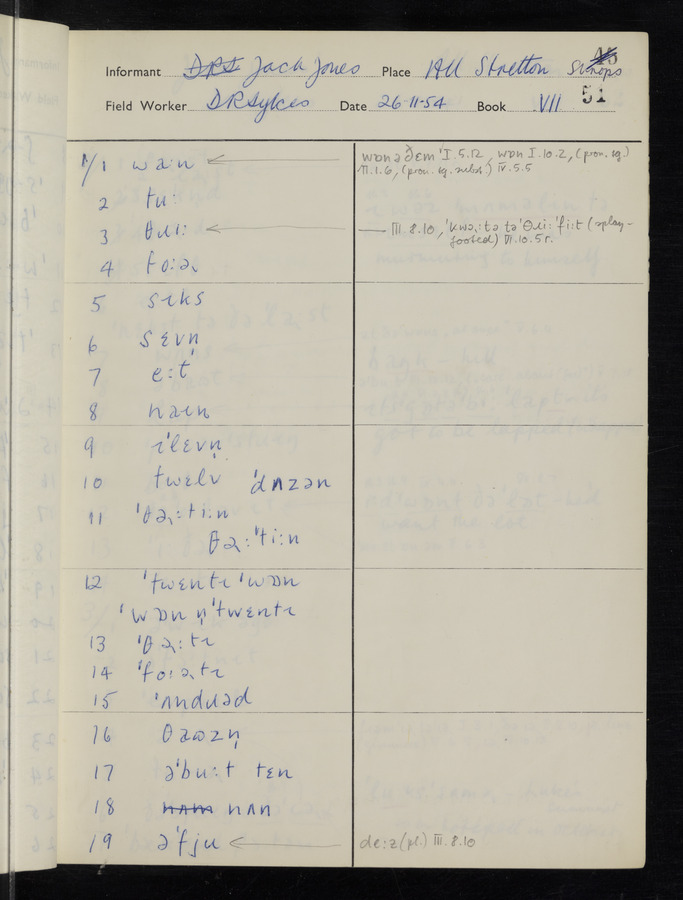 Informant Jack Jones Place All Stretton Salops
51
Field Worker DRSykes Date 26-11-54 Book VII
1/1 waːn
wɒnəðɛm I.5.12, wɒn I.10.2, (pron. sg.)
II.1.6, (pron. sg. subst.) IV.5.5
2 tuː
3 θɹɪiː
III.8.10, ˈkwəːtə tə ˈθɹiː ˈfiːt (splay-
footed) VI.10.5r.
4 foːə
5 sɪks
6 sɛvn̩
7 eːt
8 naɪn
9 ɪˈlɛvn̩
10 twɛlv ˈdʌzən
11 ˈθəːtiːn
θəːˈtiːn
12 ˈtwɛntɪ ˈwɒn
ˈwɒn n̩ ˈtwɛntɪ
13 ˈθəːtɪ
14 ˈfoːətɪ
15 ˈʌndɹəd
16 θaʊzn̩
17 əˈbuːt tɛn
18 nʌn
19 əˈfju
deːz (pl.) III.8.10